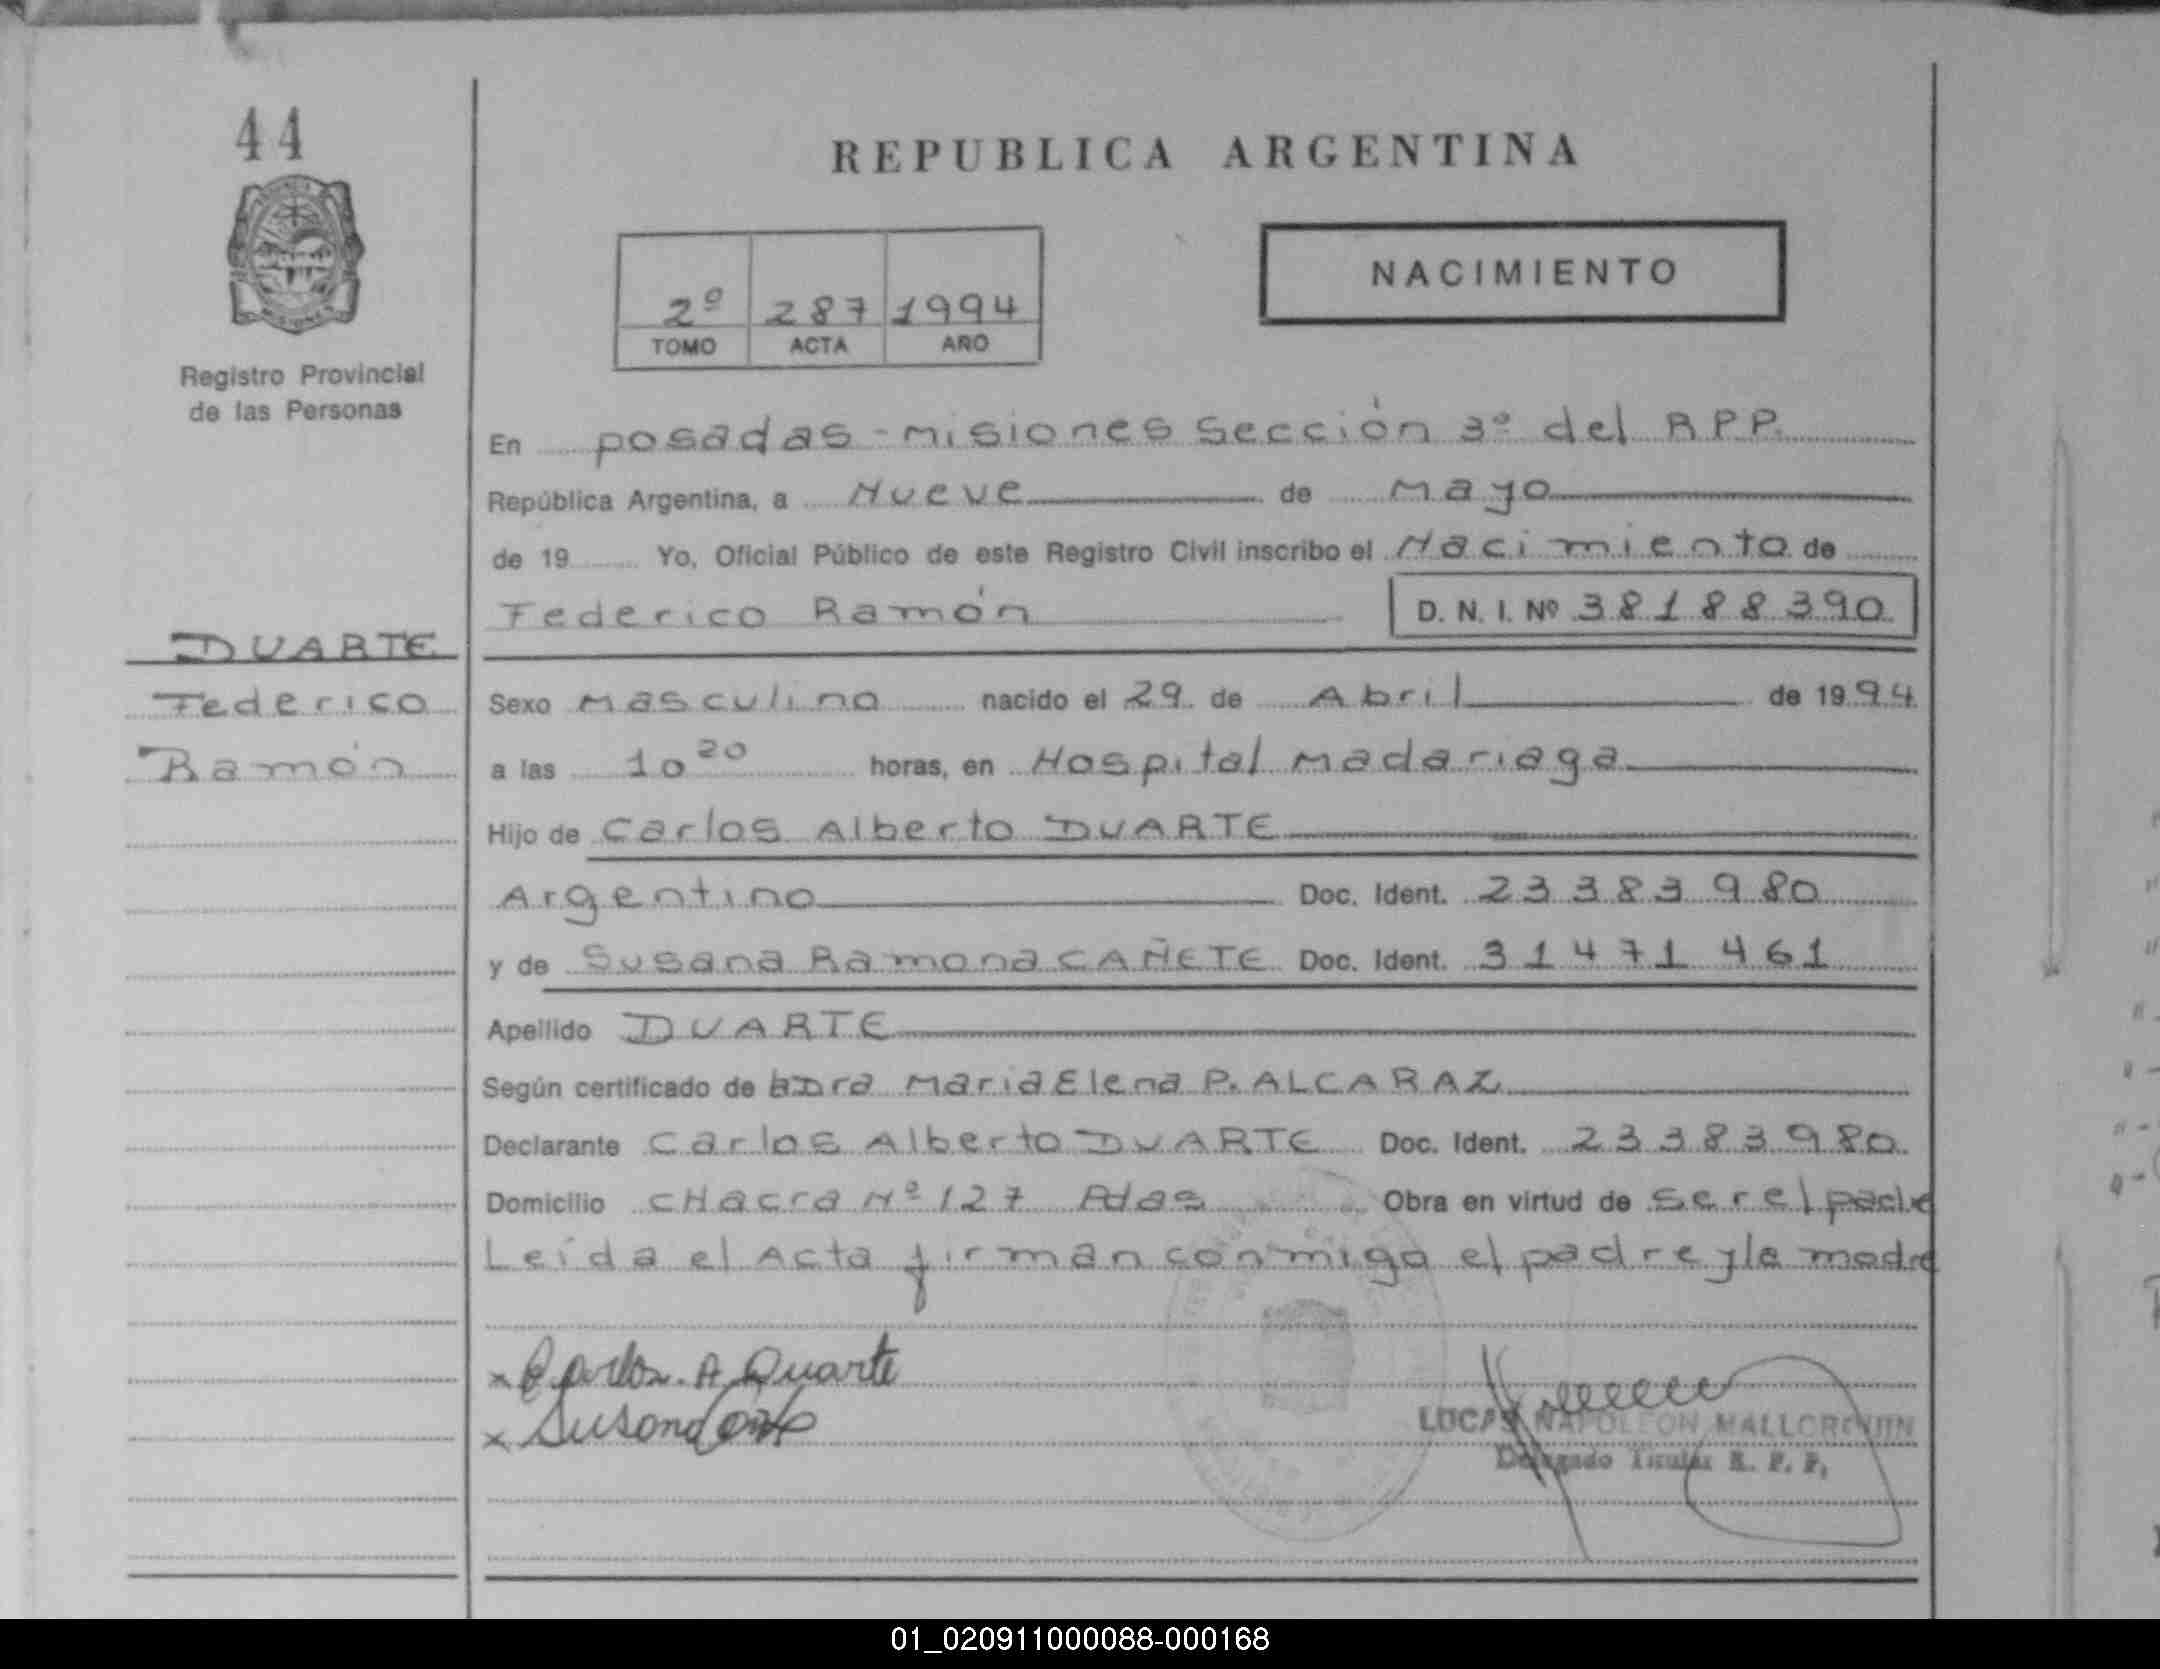 44
REPUBLICA ARGENTINA
NACIMIENTO
2º 287 1994
TOMO ACTA AÑO
Registro Provincial
de las Personas
En posadas - misiones sección 3º del R P P.
República Argentina, a Nueve de Mayo
de 19 Yo, Oficial Público de este Registro Civil inscribo el Nacimiento de
Federico Ramón D. N. I. Nº 38188390
DUARTE
Federico
Ramón
Sexo Masculino nacido el 29 de Abril de 1994
a las 10 20 horas, en Hospital Madariaga
Hijo de Carlos Alberto DUARTE
Argentino Doc. Ident. 23 383 980
y de Susana Ramona CAÑETE Doc. Ident. 31 471 461
Apellido DUARTE
Según certificado de la Dra Maria Elena P. ALCARAZ
Declarante Carlos Alberto DUARTE Doc. Ident. 23383980
Domicilio CHacra Nº 127 Pdas Obra en virtud de ser el padre
Leída el Acta firman conmigo el padre y la madre
x Carlos. A Duarte
x Susana
LUCAS NAPOLEON MALLORQUIN
Delegado Titular R. P. P.
01_020911000088-000168